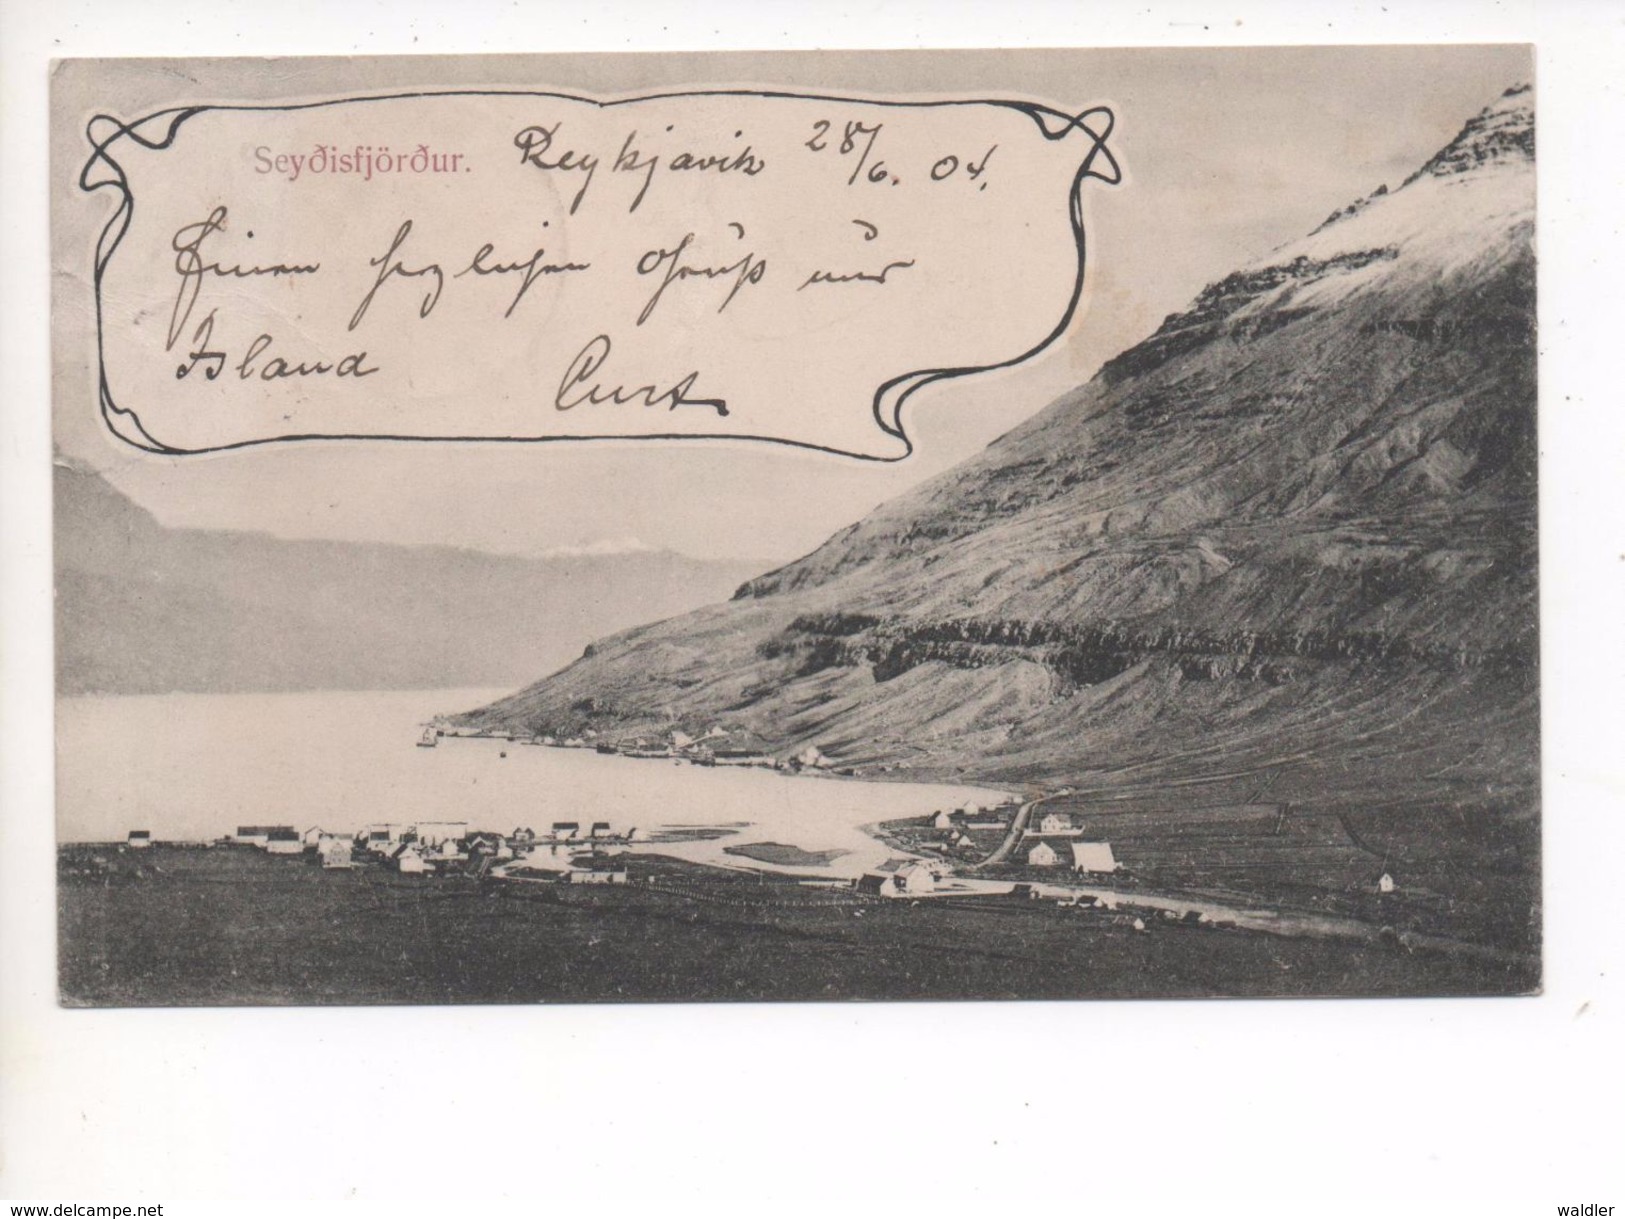 Seyðisfjörður. Reykjavik 28/6. 04.
Einen herzlichen Gruß aus
Island Curt
www.delcampe.net
waldler